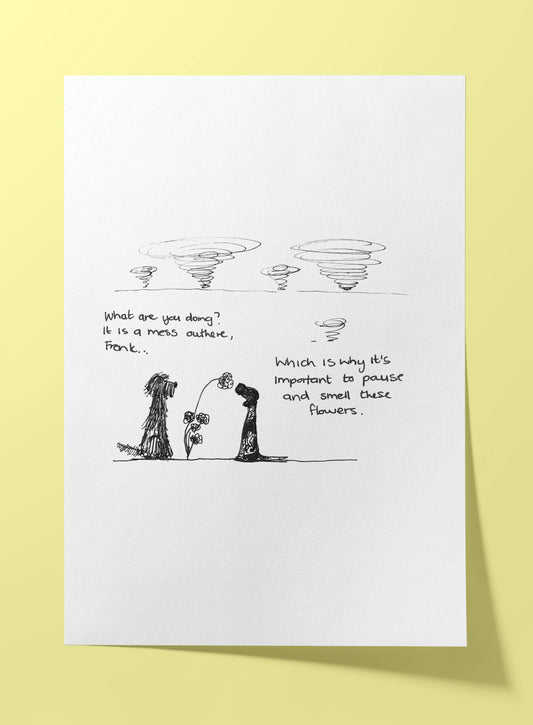 What are you doing?
It is a mess outhere,
Frank..
Which is why it's
important to pause
and smell these
flowers.